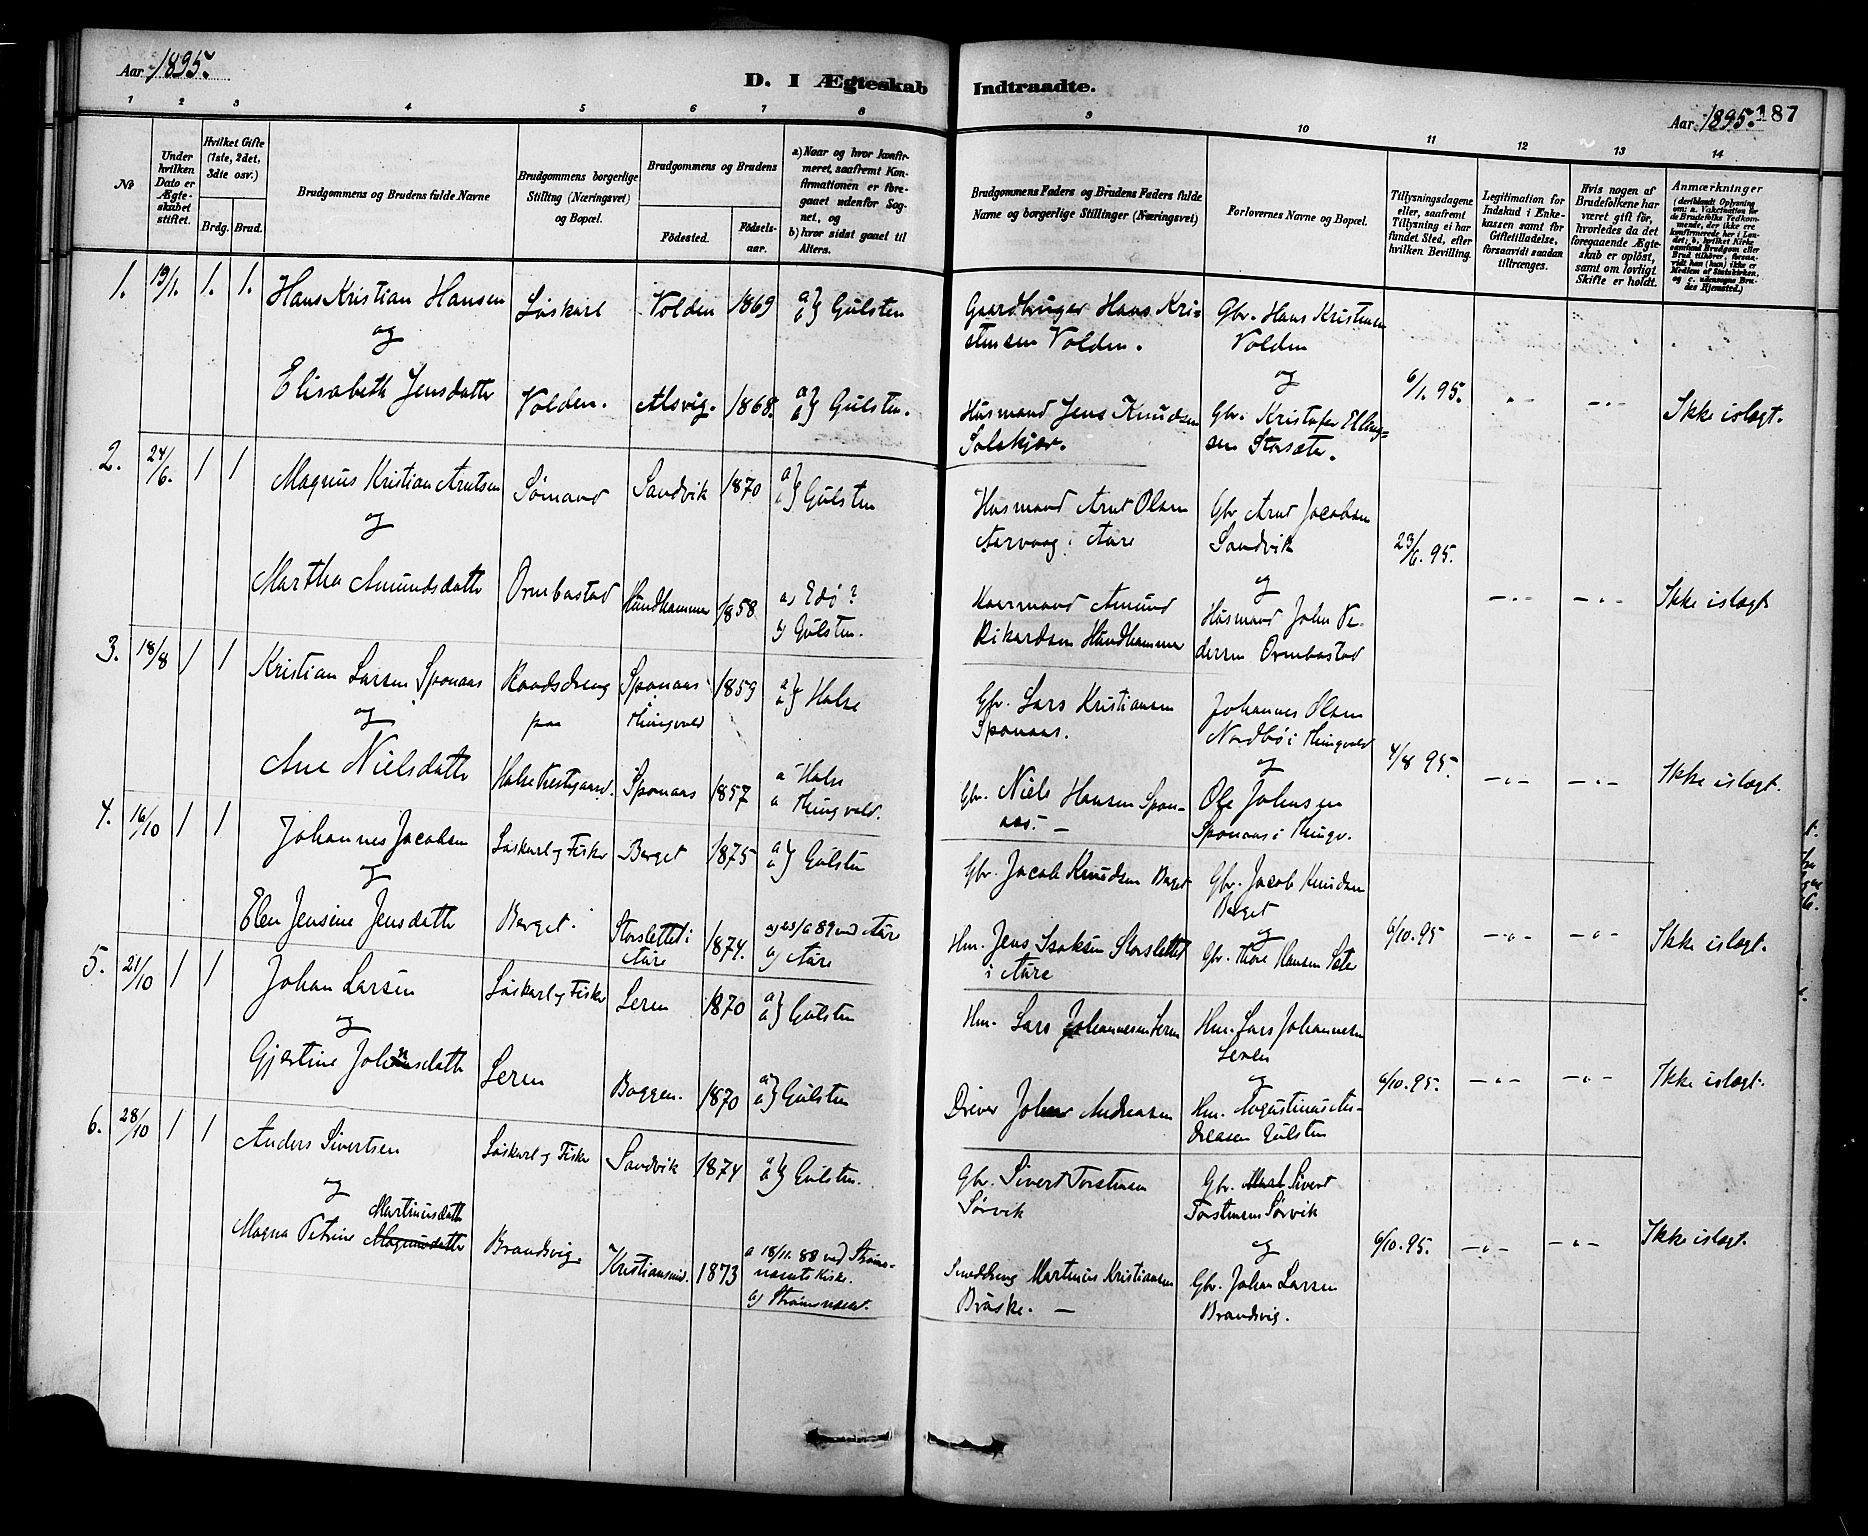 Aar 1895.
D. I Ægteskab Indtraadte.
Aar 1895. 187
1 2 3 4 5 6 7 8 9 10 11 12 13 14
№
Under hvilken Dato er Ægteskabet stiftet.
Hvilket Gifte (1ste, 2det, 3die osv.)
Brdg. Brud.
Brudgommens og Brudens fulde Navne
Brudgommens borgerlige Stilling (Næringsvei) og Bopæl.
Brudgommens og Brudens
Fødested. Fødselsaar.
a) Naar og hvor konfirmeret, saafremt Konfirmationen er foregaaet udenfor Sognet, og
b) hvor sidst gaaet til Alters.
Brudgommens Faders og Brudens Faders fulde Navne og borgerlige Stillinger (Næringsvei)
Forlovernes Navne og Bopæl.
Tillysningsdagene eller, saafremt Tillysning ei har fundet Sted, efter hvilken Bevilling.
Legitimation for Indskud i Enkekassen samt for Giftetilladelse, forsaavidt saadan tiltrænges.
Hvis nogen af Brudefolkene har været gift før, hvorledes da det foregaaende Ægteskab er opløst, samt om lovligt Skifte er holdt.
Anmærkninger
1. 19/1. 1. 1. Hans Kristian Hansen Løskarl Volden 1869 a b} Gulsten Gaardbruger Hans Kristensen Volden. Gbr. Hans Kristensen Volden
og
Elisabeth Jensdatte Volden. Alsvig. 1868. a b} Gulsten. Husmand Jens Knudsen Solskjær. og Gbr. Kristofer Ellingsen Storsæter. 6/1. 95. -"- -"- Ikke islægt.
2. 24/6. 1 1 Magnus Kristian Arntsen Sømand Sandvik 1870 a b} Gulsten Husmand Arnt Olsen Aarvaag i Aure Gbr Arnt Jacobsen Sandvik
og
Martha Amundsdatte Ormbostad Hundhammer 1858 a) Edø? b) Gulsten. Kaarmand Amund Rikardsen Hundhammer og Husmand John Pedersen Ormbostad 23/6. 95. -"- -"- Ikke islægt
3. 18/8 1 1 Kristian Larsen Sponaas Raadsdreng paa Sponaas i Thingvold 1859 a b} Halse Gbr. Lars Kristiansen Sponaas. Johannes Olsen Nordbø i Thingvold
og
Ane Nielsdatte Halse Prestgaard. Sponaas 1857 a Halse b Thingvold. Gbr. Niels Hansen Sponaas. — og Ole Johnsen Sponaas i Thingv. 4/8 95. -"- -"- Ikke islægt.
4. 16/10 1 1 Johannes Jacobsen Løskarl og Fisker Berget 1875 a b} Gulsten Gbr. Jacob Knudsen Berget Gbr. Jacob Knudsen Berget
og
Elen Jensine Jensdatte Berget. Storslettet i Aure 1874. 89 ved Aure b) Aure Hm. Jens Isaksen Storslettet i Aure og Gbr. Thore Hansen Sæter 6/10. 95 -"- -"- Ikke islægt.
5. 21/10 1 1 Johan Larsen Løskarl og Fisker Leren 1870 a b} Gulsten Hm. Lars Johannesen Leren Hm. Lars Johannesen Leren
og
Gjertine Johnsdatte Leren Boggen. 1870 a b} Gulsten Drever Johan Andreasen og Hm. Augustinus Andreasen Gulsten 6/10. 95. -"- -"- Ikke islægt.
6. 28/10 1 1 Anders Sivertsen Løskarl og Fisker Sandvik 1874 a b} Gulsten. Gbr. Sivert Torstensen Sørvik Gbr. Sivert Torstensen Sørvik
og
Magna Petrine Martinusdatte Magnusdatte Brandsvig. Kristiansund. 1873 a 18/11. 88 ved Strømsnæsets Kirke. b) Strømsnæset. Smeddreng Martinus Kristiansen Brøske. — og Gbr. Johan Larsen Brandsvig. 6/10. 95. -"- -"- Ikke islægt.